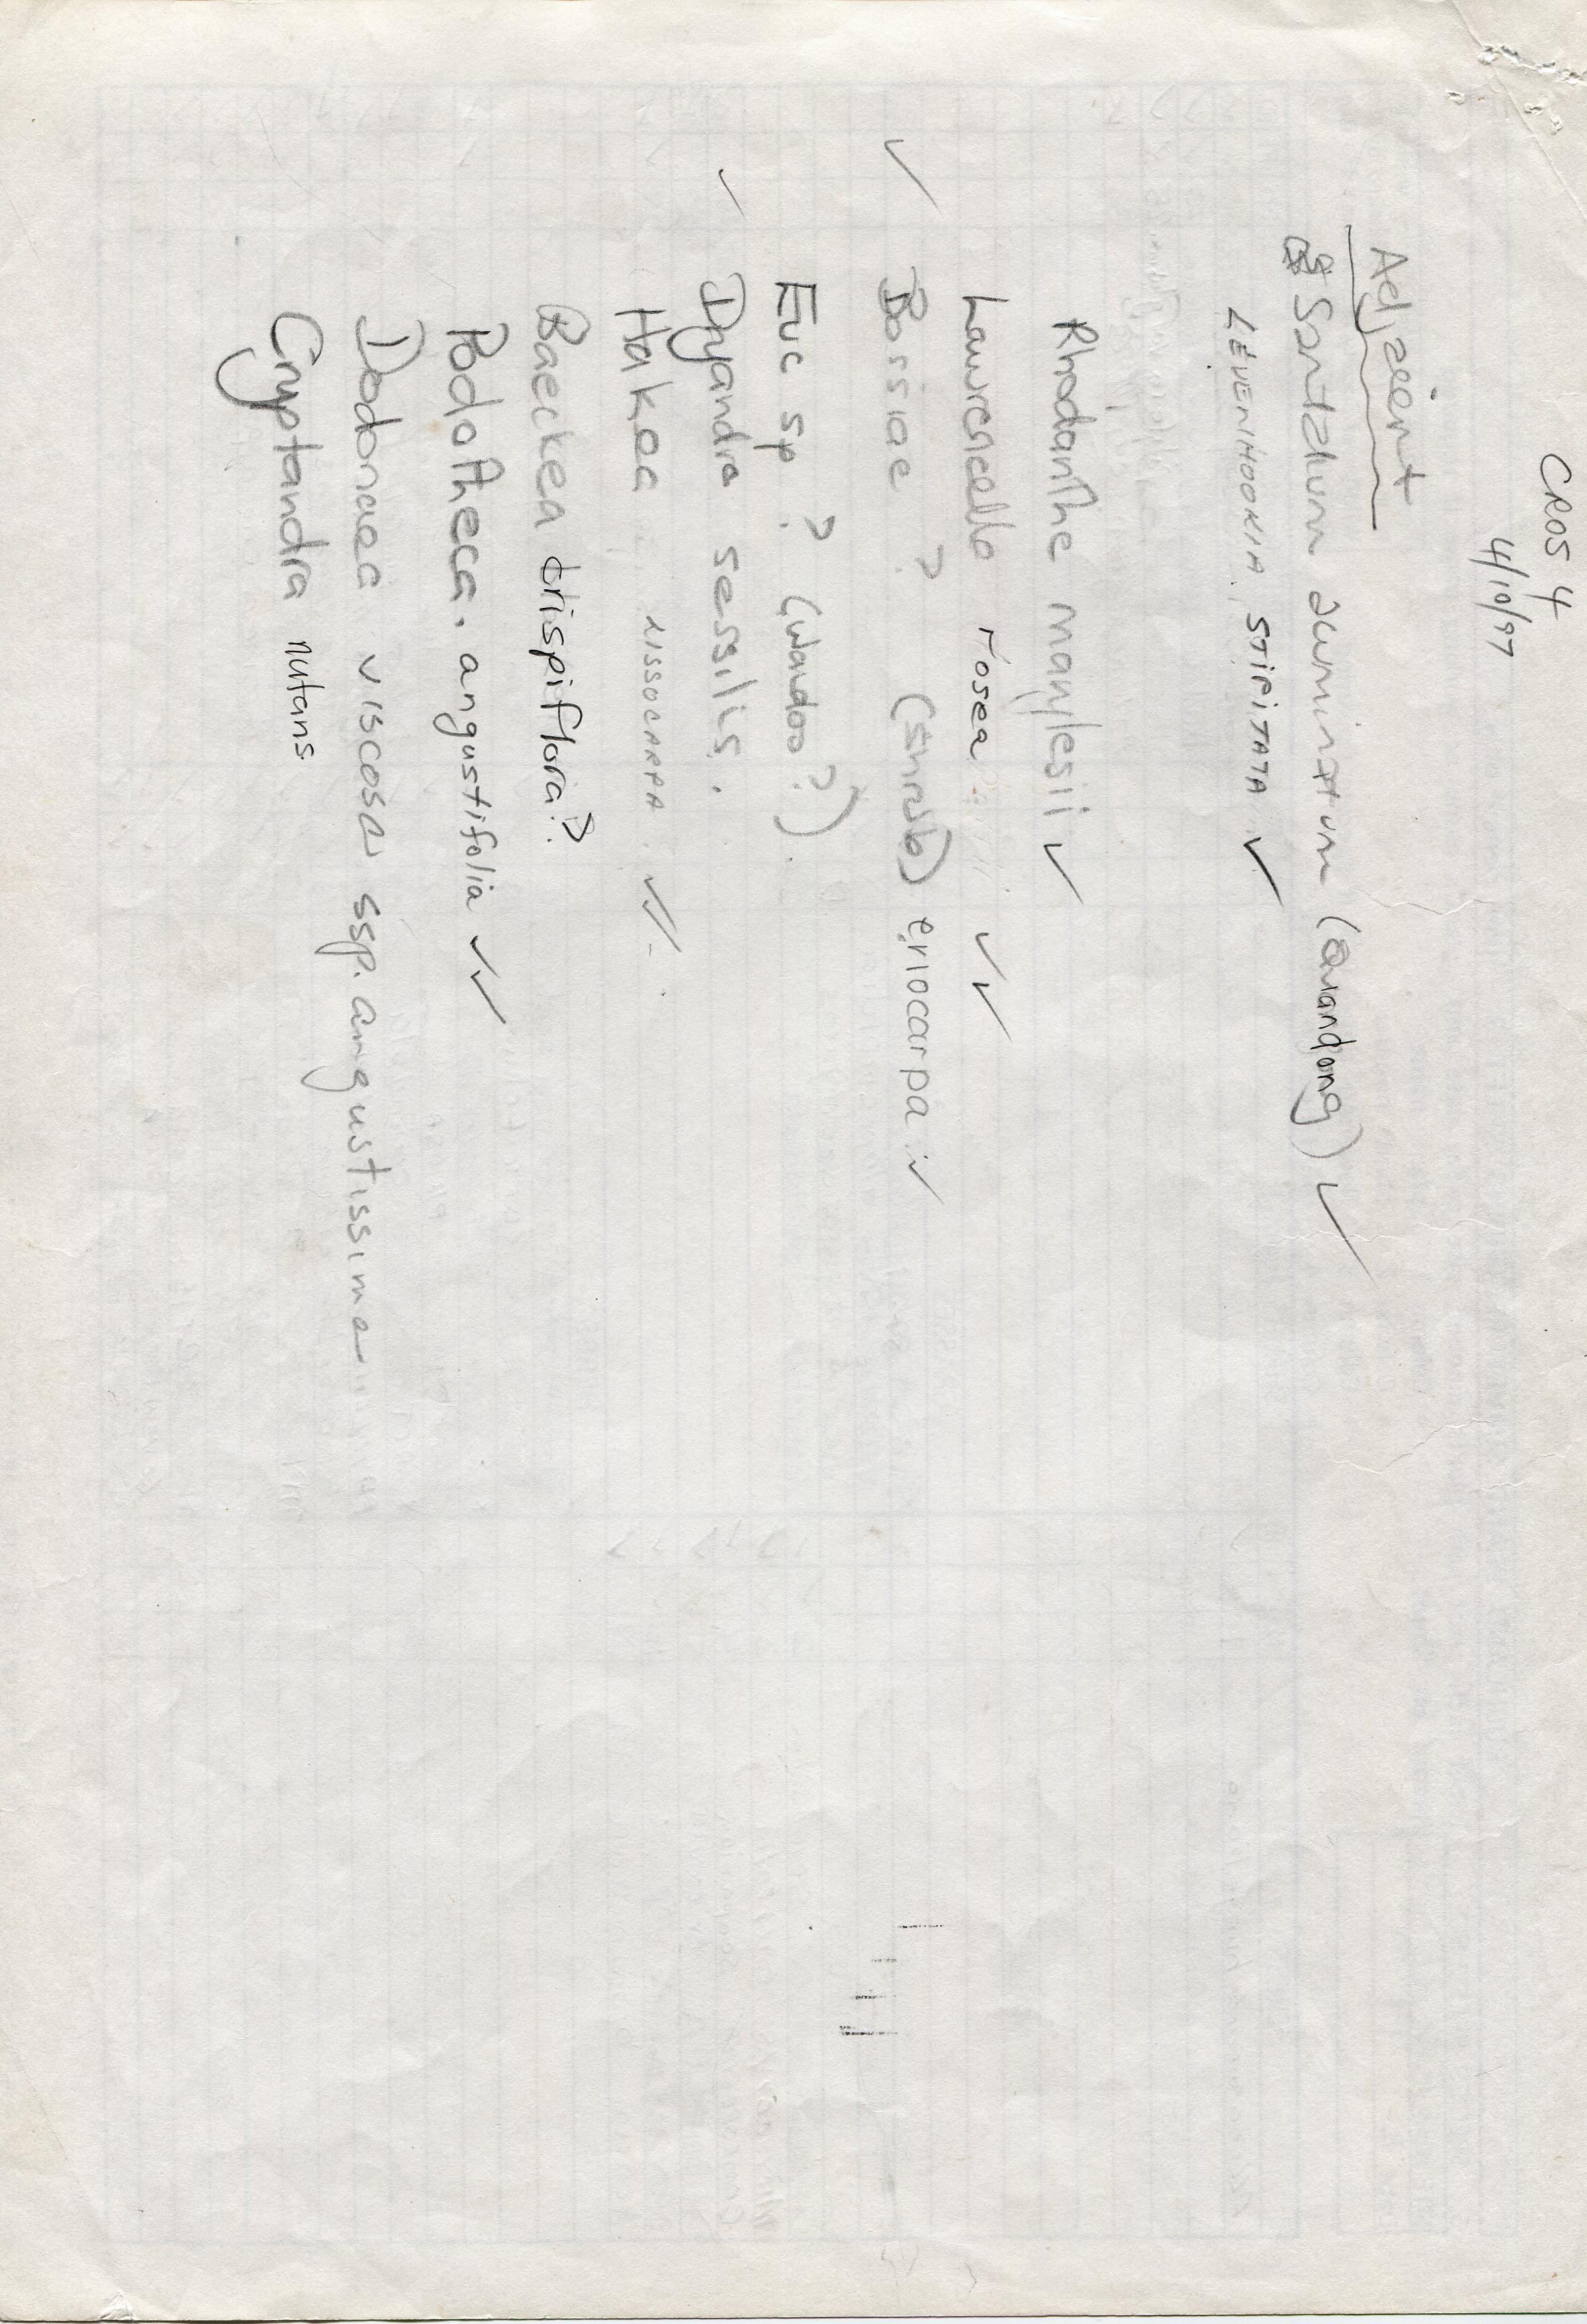 CROS 4
4/10/97
Adjacent
Santalum acuminatum (Quandong) ✓
LEVENHOOKIA STIPITATA ✓
Rhodanthe manglesii ✓
Lawrencella rosea ✓✓
✓ Bossiae ? (shrub) eriocarpa ✓
Euc sp ? (Wandoo?).
✓ Dryandra sessilis.
Hakea LISSOCARPA. ✓✓
Baeckea crispiflora?
Podotheca. angustifolia ✓✓
Dodonaea viscosa ssp. angustissima
Cryptandra nutans